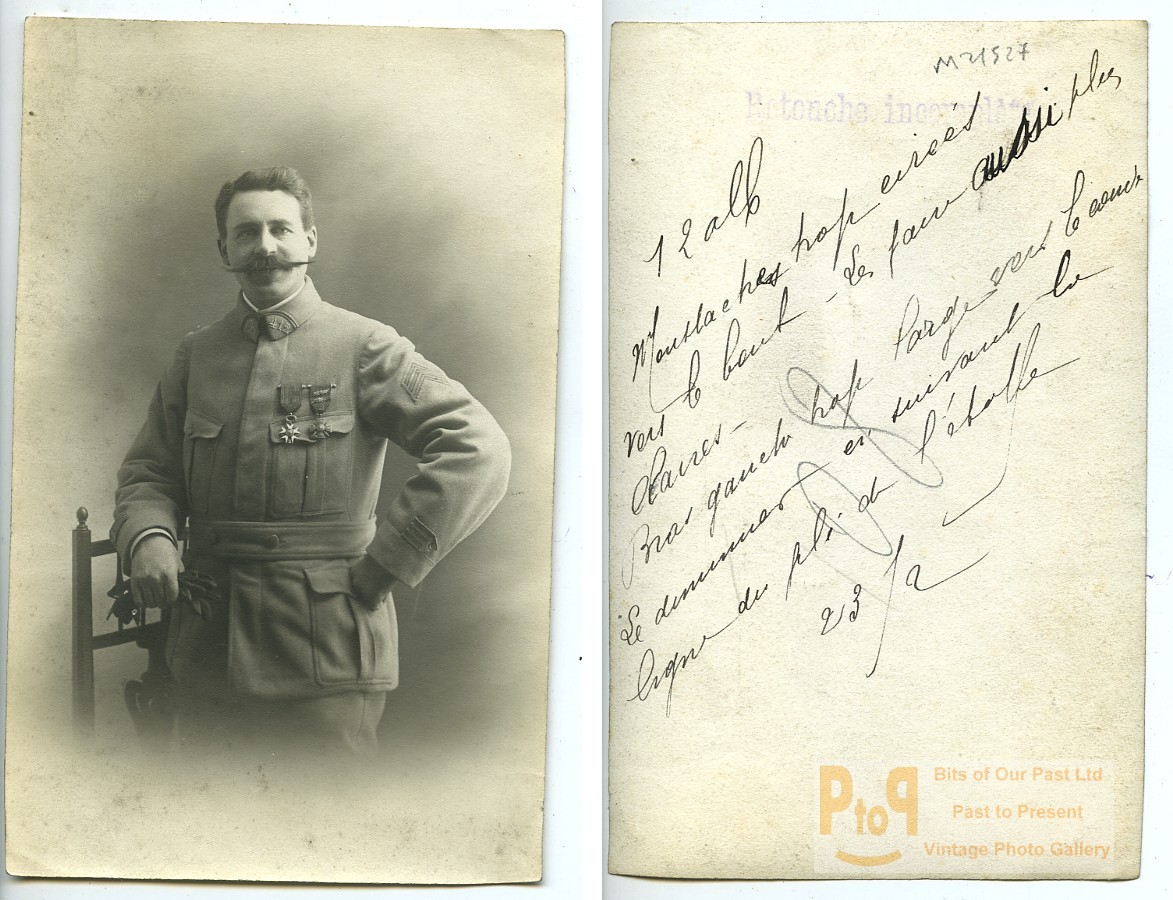 M21527
Retouche incomplète
12 alb
Moustaches trop cirées
vers le bout - Les faire aussi plus
Claires -
Bras gauche trop large vers le coude
Le diminuer en suivant la
ligne du pli de l'étoffe
23/2
413
PtoP
Bits of Our Past Ltd
Past to Present
Vintage Photo Gallery